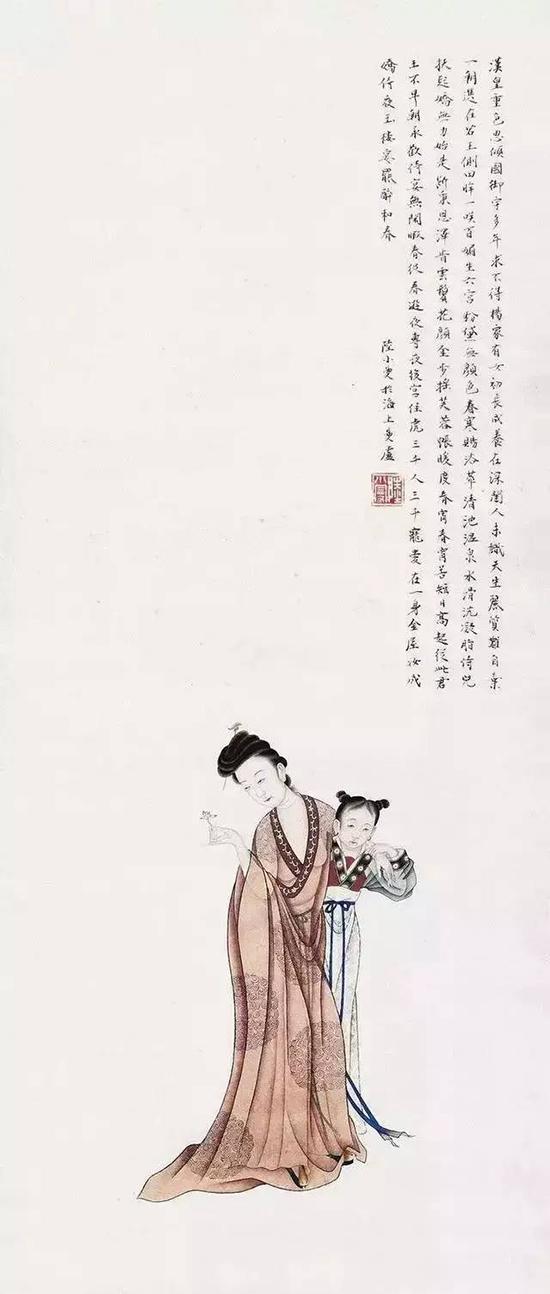 漢皇重色思傾國御宇多年求不得楊家有女初長成養在深閨人未識天生麗質難自棄
一朝選在君王側回眸一咲百媚生六宮粉黛無顏色春寒賜浴華清池溫泉水滑洗凝脂侍兒
扶起嬌無力始是新承恩澤旹雲鬢花顏金步搖芙蓉帳暖度春宵春宵苦短日高起從此君
王不早朝承歡侍宴無閑暇春從春遊夜專夜後宮佳麗三千人三千寵愛在一身金屋妝成
嬌侍夜玉樓宴罷醉和春
陸小曼於海上曼廬
陸小曼